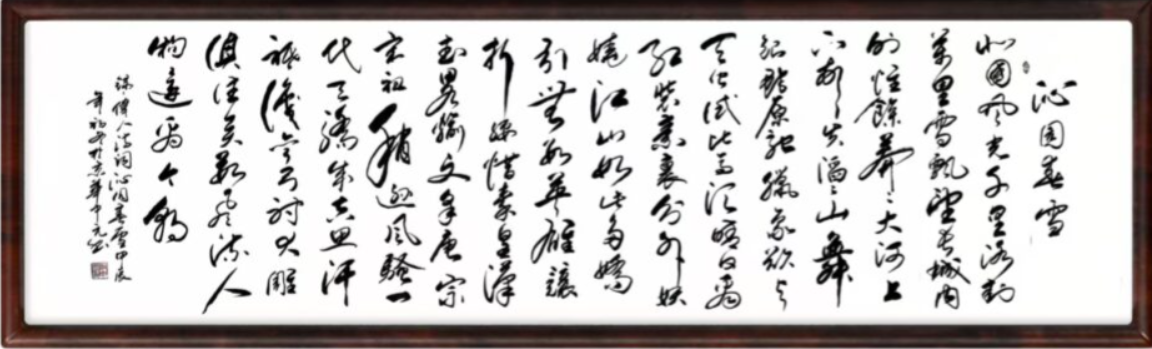 沁园春雪
北國风光千里冰封
萬里雪飘望长城内
外惟餘莽莽大河上
下顿失滔滔山舞
银蛇原驰蜡象欲与
天公试比高须晴日看
红装素裹分外妖
娆江山如此多娇
引無数英雄竞
折腰惜秦皇漢
武略输文采唐宗
宋祖稍逊风骚一
代天骄成吉思汗
祇识弯弓射大雕
俱往矣数风流人
物還看今朝
偉人诗词沁园春雪甲辰
年初冬於京華中元书